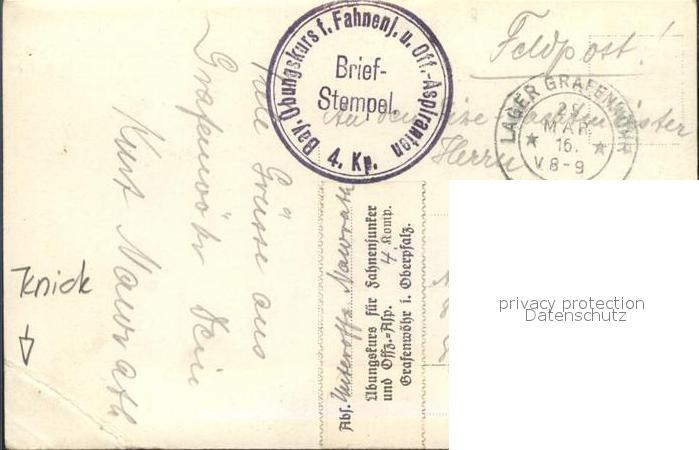 Feldpost!
Bay. Übungskurs f. Fahnenj. u. Off.-Aspiranten
Brief-
Stempel.
4. Kp.
LAGER GRAFENWÖHR
28
MÄR
16.
V. 8-9
An
Herrn
Viele Grüsse aus
Grafenwöhr Dein
Kurt Mawrath
Abs. Unteroffz. Mawrath
Übungskurs für Fahnenjunker
und Offz.=Asp. 4 Komp.
Grafenwöhr i. Oberpfalz.
Knick
privacy protection
Datenschutz